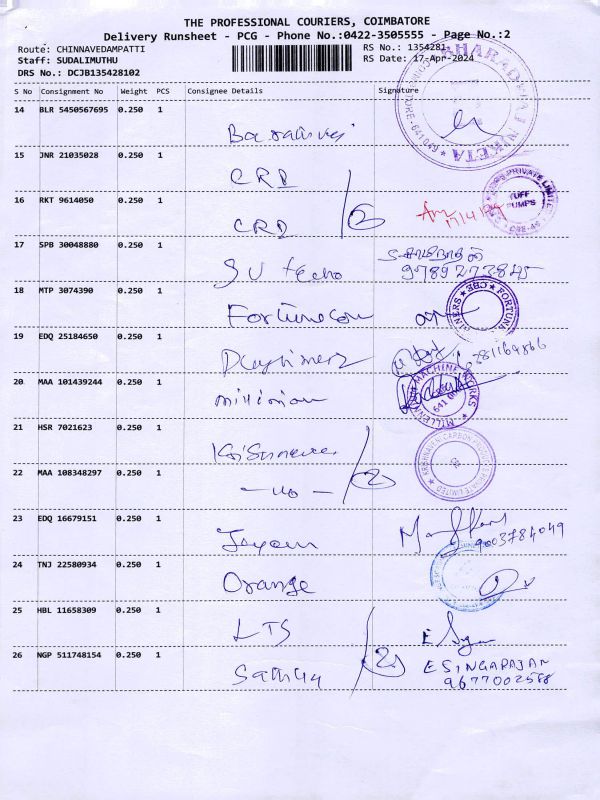 THE PROFESSIONAL COURIERS, COIMBATORE
Delivery Runsheet - PCG - Phone No.:0422-3505555 - Page No.:2
Route: CHINNAVEDAMPATTI RS No.: 1354281
Staff: SUDALIMUTHU RS Date: 17-Apr-2024
DRS No.: DCJB135428102
S No Consignment No Weight PCS Consignee Details Signature
14 BLR 5450567695 0.250 1
15 JNR 21035028 0.250 1 CRD
16 RKT 9614050 0.250 1 CRD 2 17/4
TUFF PUMPS
17 SPB 30048880 0.250 1 SU techno
9789273845
18 MTP 3074390 0.250 1 Fortunecon
19 EDQ 25184650 0.250 1
20 MAA 101439244 0.250 1 millenium
21 HSR 7021623 0.250 1
22 MAA 108348297 0.250 1 2
23 EDQ 16679151 0.250 1 Jayam
9003784049
24 TNJ 22580934 0.250 1 Orange
25 HBL 11658309 0.250 1 LTS
26 NGP 511748154 0.250 1 2 E SINGARAJAN
9677002588